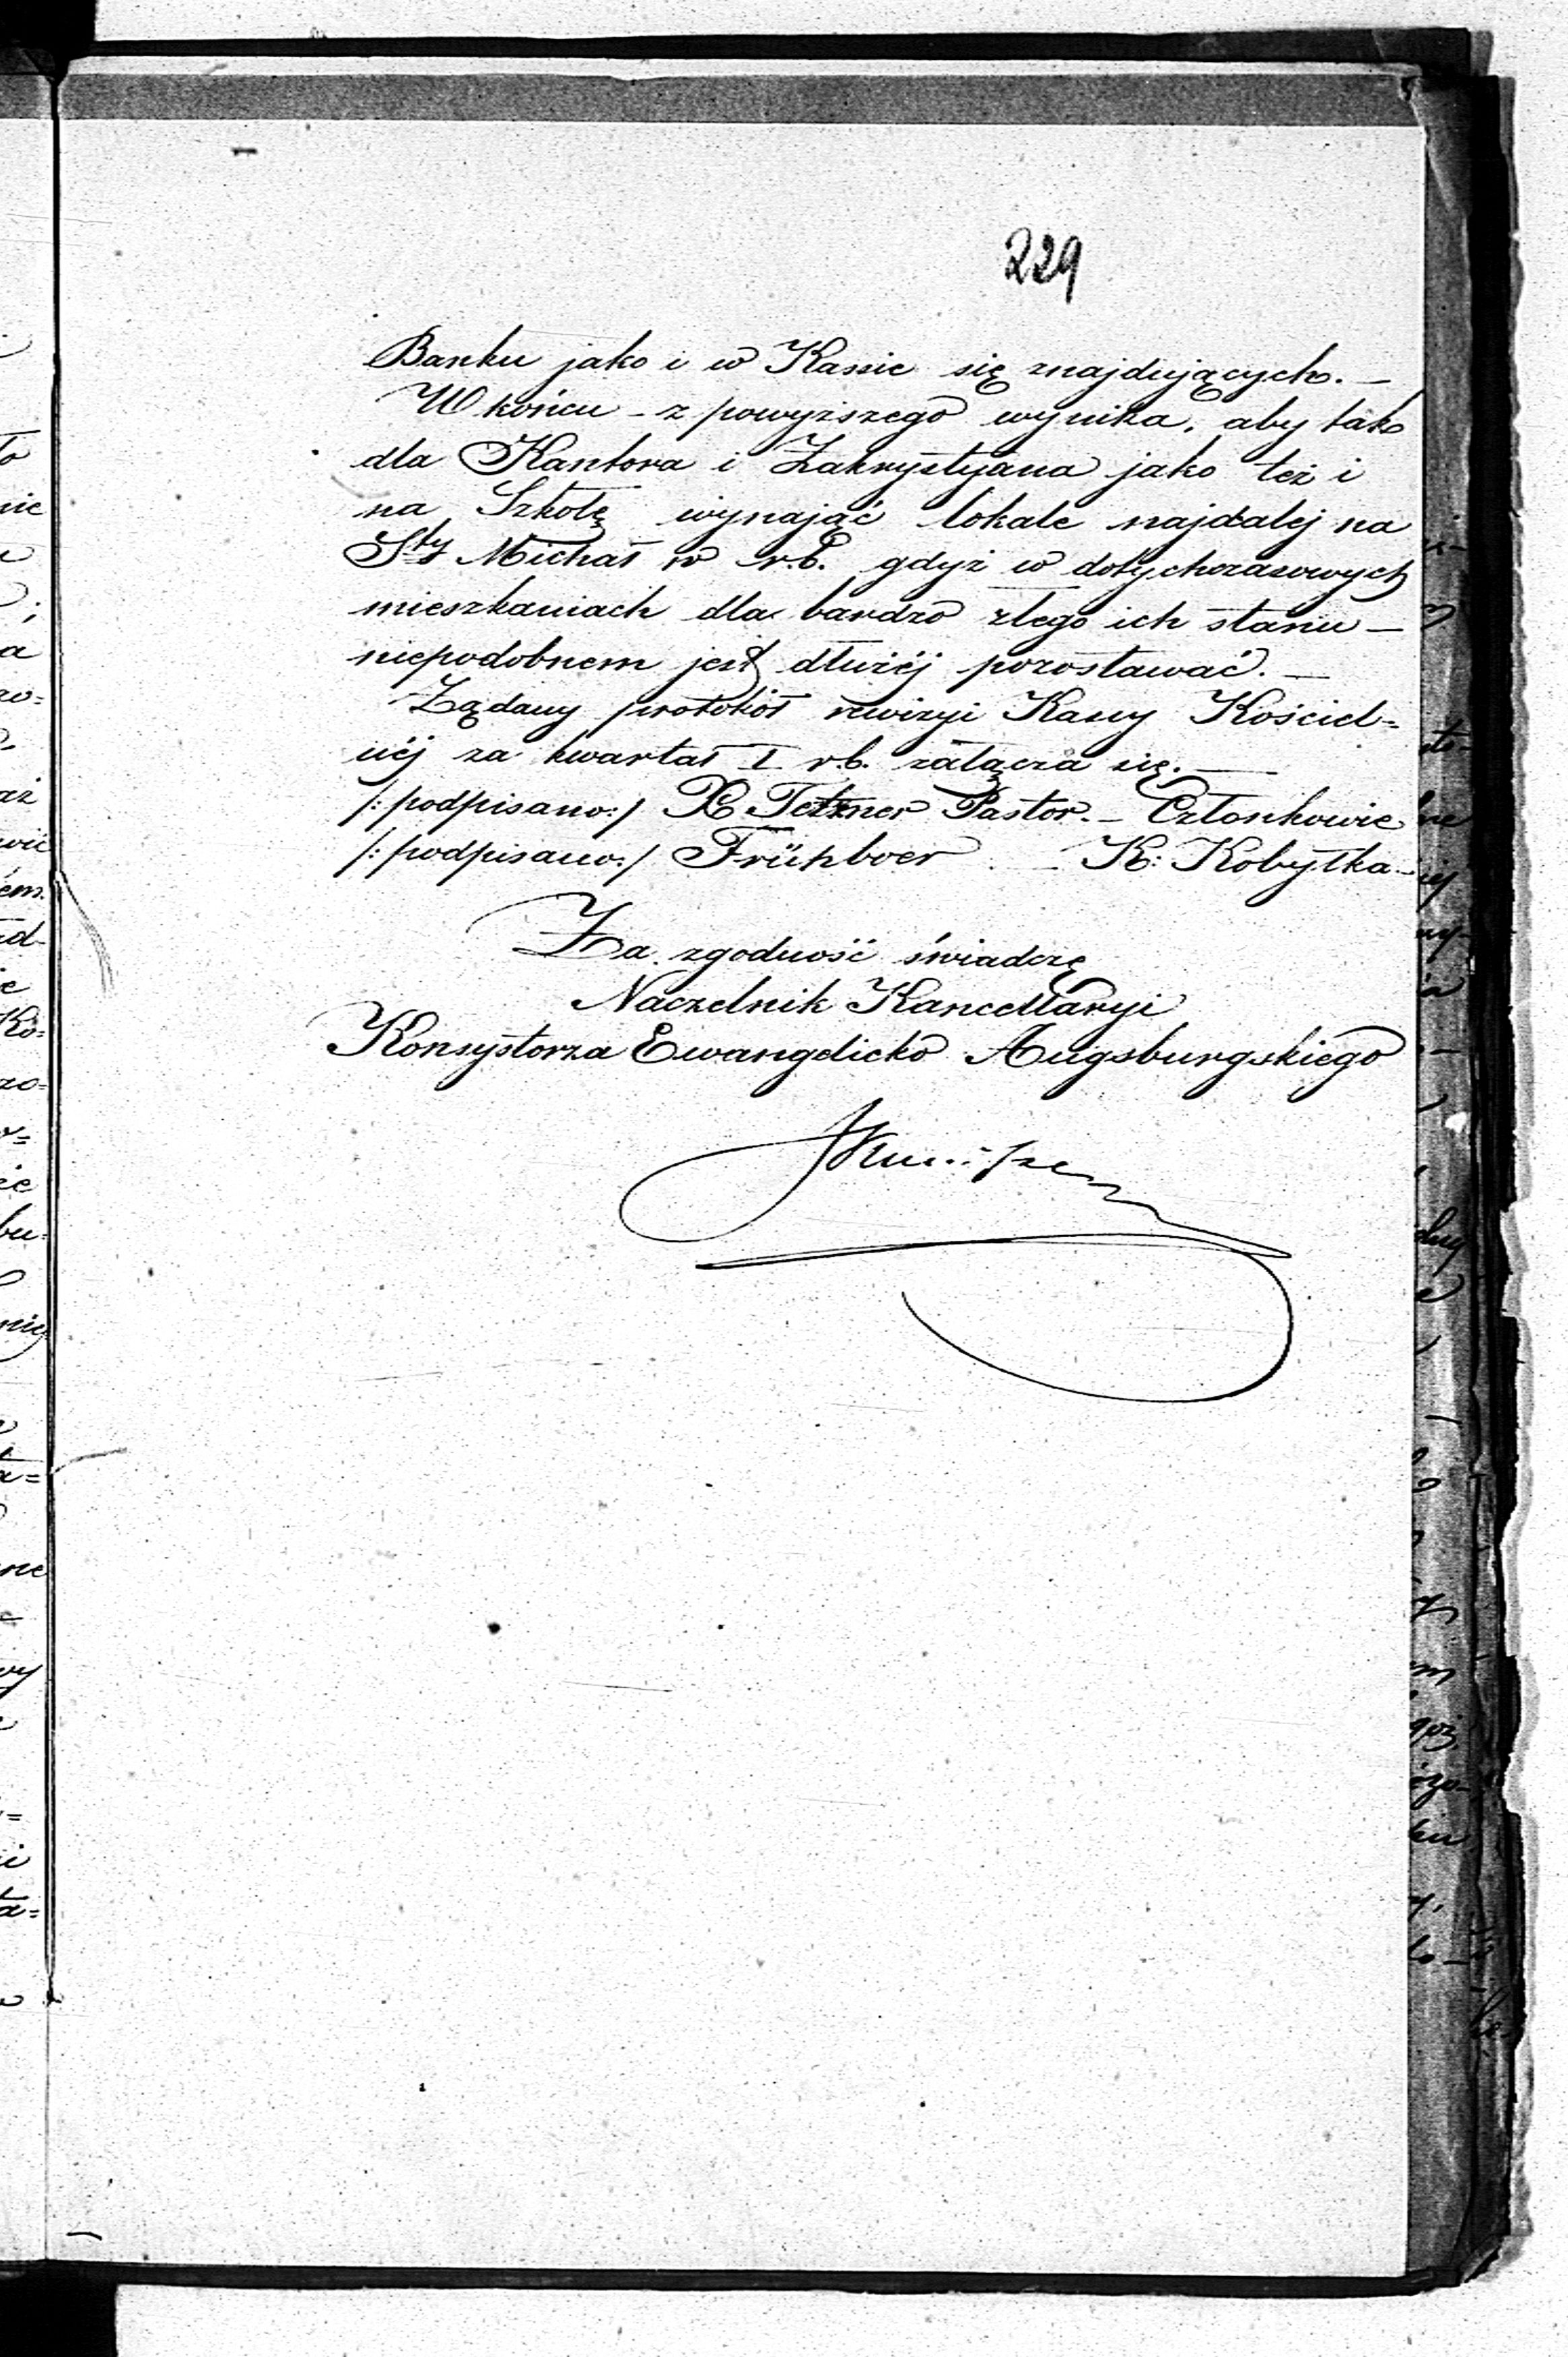 229
Banku jako i w Kassie się znajdujących. —
W końcu – z powyższego wynika, aby tak
dla Kantora i Zakrystyana jako też i
na Szkołę wynająć lokale najdalej na
Sty Michał w r.b. gdyż w dotychczasowych
mieszkaniach dla bardzo złego ich stanu —
niepodobnem jest dłużéj pozostawać. —
Żądany protokół rewizyi Kassy Kościel=
néj za kwartał I r.b. załącza się. —
/: podpisano:/ X Tetzner Pastor. – Członkowie
/: podpisano:/ Frühboer — K: Kobyłka.
Za zgodność świadczę
Naczelnik Kancellaryi
Konsystorza Ewangelicko Augsburgskiego